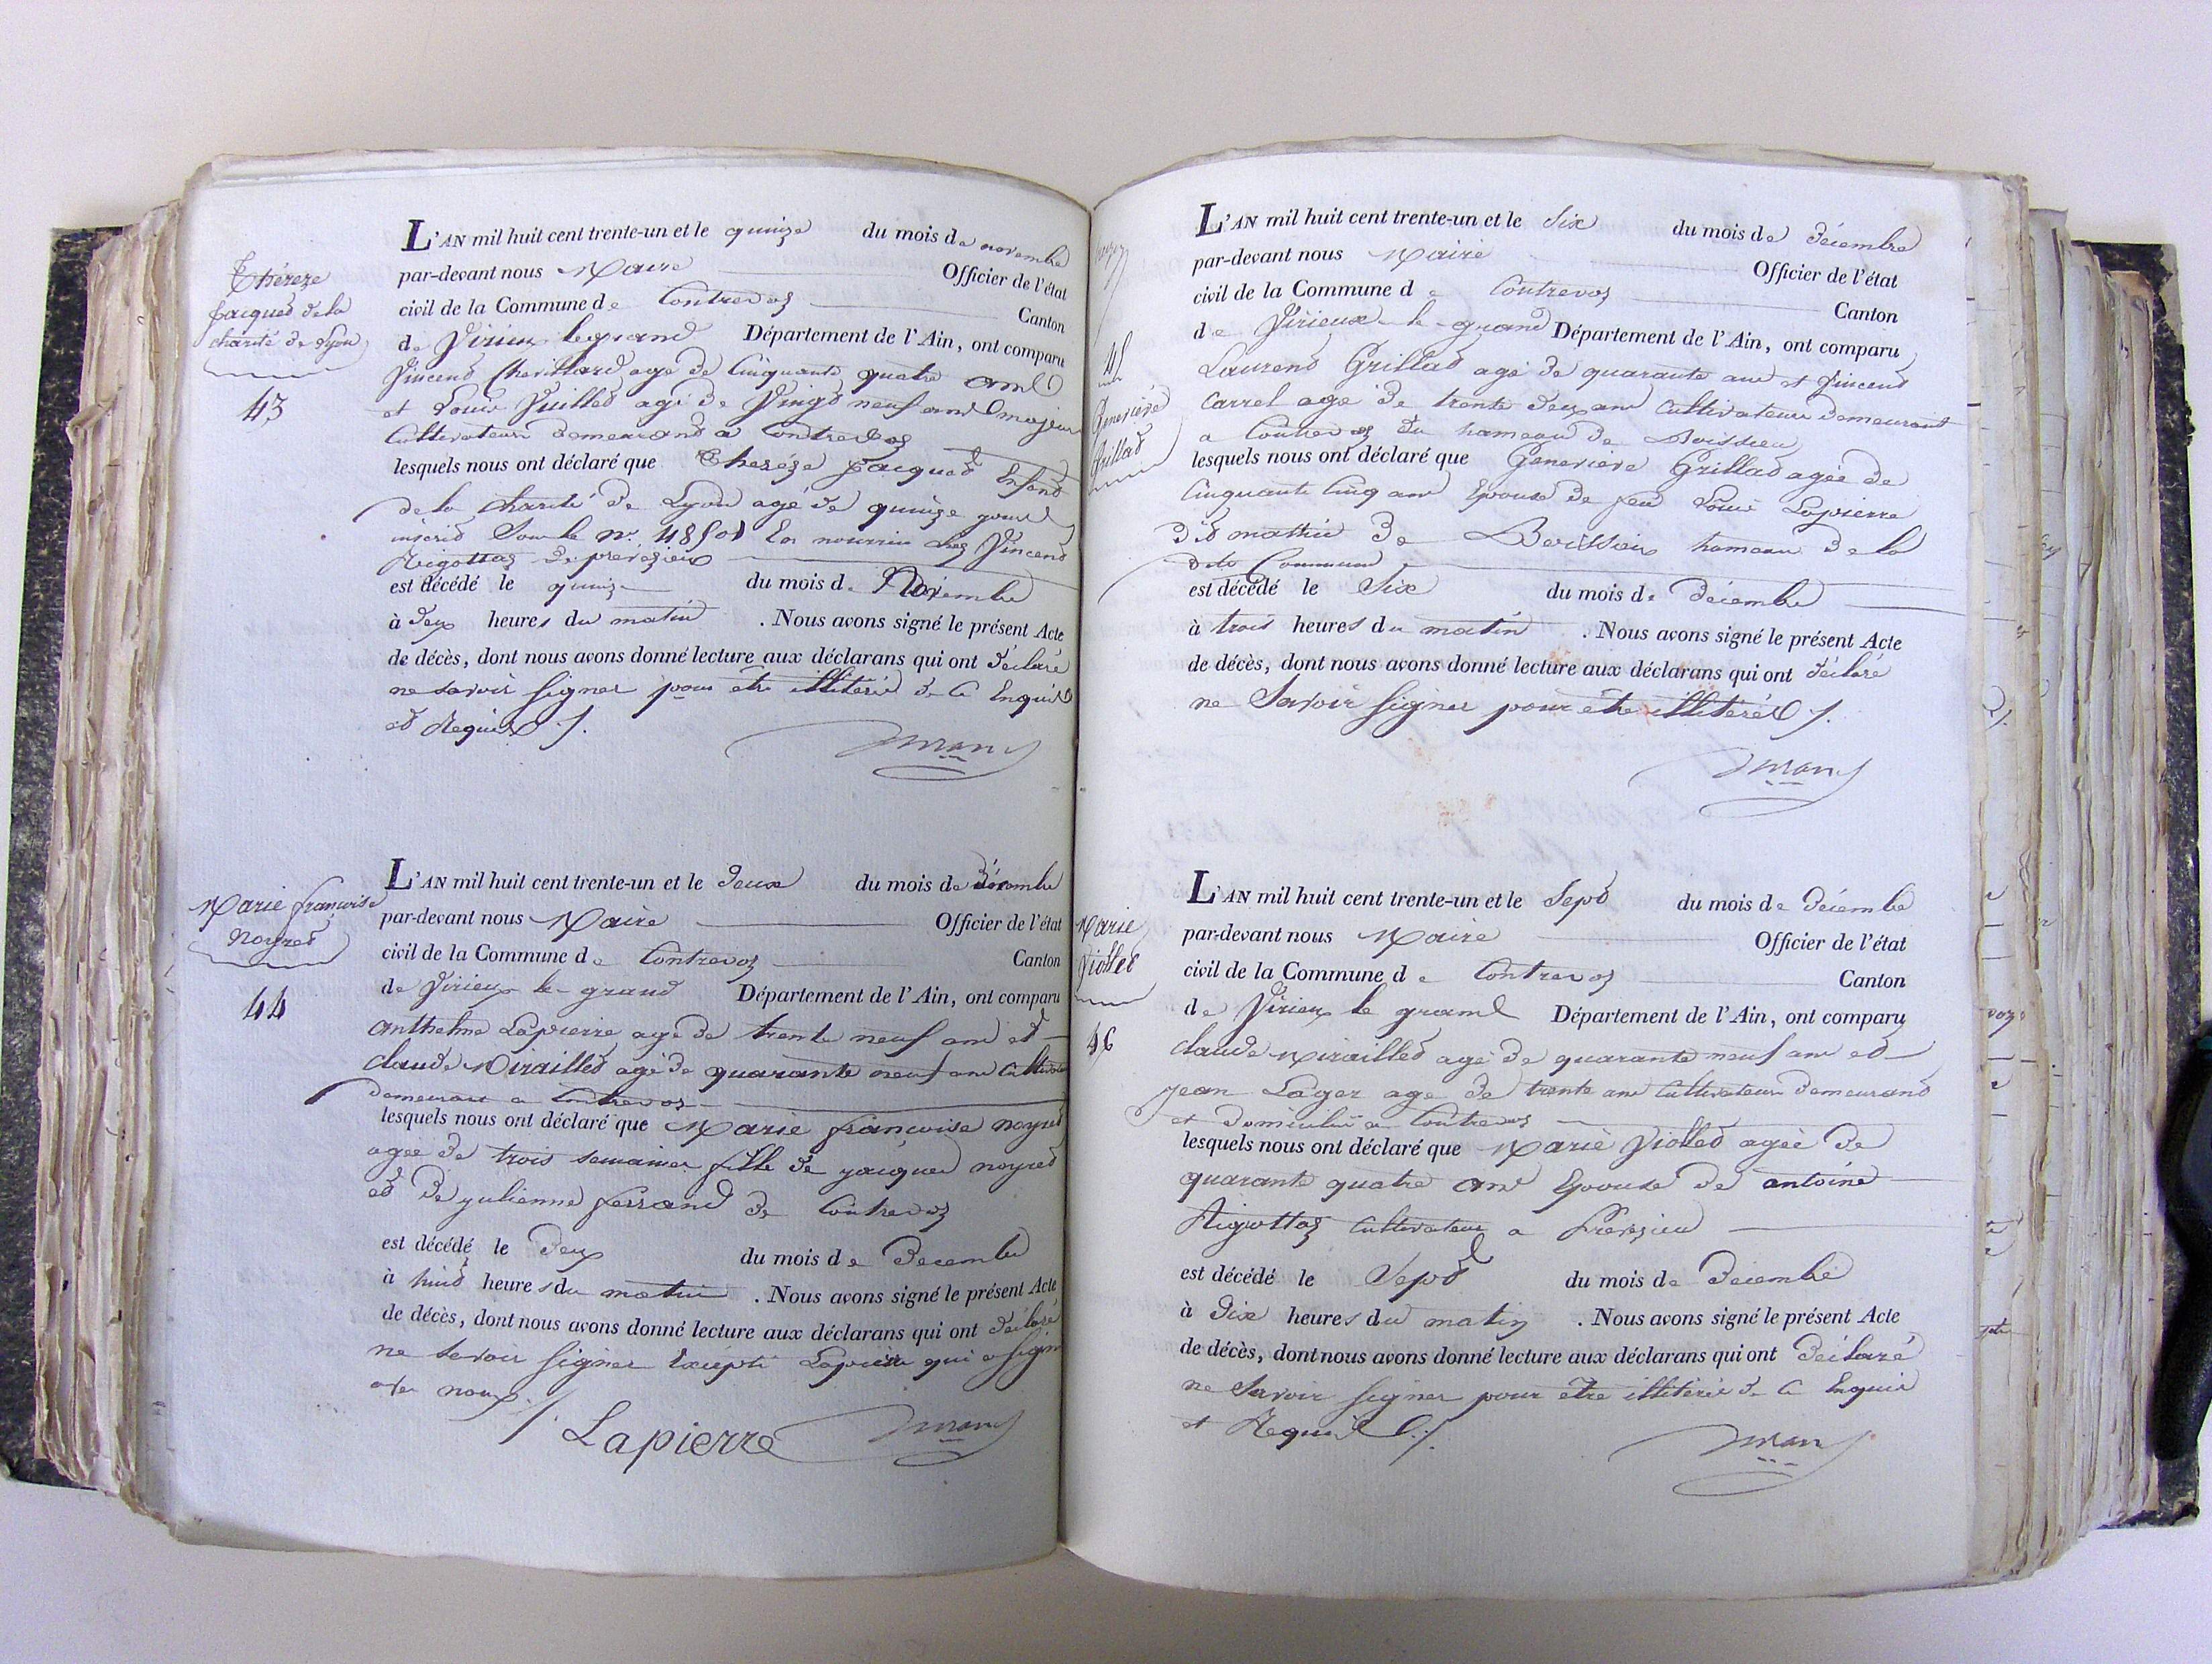 Théreze
Jacqued de la
charité de Lyon
43
L'AN mil huit cent trente-un et le quinze du mois de novembre
par-devant nous Maire Officier de l'état
civil de la Commune de Contrevoz Canton
de Virieu legrand Département de l'Ain, ont comparu
Vincend Chevillard agé de Cinquante quatre ans
et Louis Juilled agé de Vingd neuf ans majeur
Cultivateurs demeurand a Contrevoz
lesquels nous ont déclaré que Theréze Jacqued Enfand
de la Charité de Lyon agé de quinze jours
inscrid Sous le no. 48501 En nourrice chez Vincend
Rigottaz de preveyzieux
est décédé le quinze du mois de Novembre
à deux heures du matin . Nous avons signé le présent Acte
de décès, dont nous avons donné lecture aux déclarans qui ont déclaré
ne savoir signer pour être illitéré de ce Enquis
et Requis /.
Marie francoise
noyred
44
L'AN mil huit cent trente-un et le deux du mois de décembre
par-devant nous Maire Officier de l'état
civil de la Commune de Contrevoz Canton
de Virieux le grand Département de l'Ain, ont comparu
anthelme Lapierre agé de trente neuf ans et
claude Mirailled agé de quarante neuf ans Cultivateurs
demeurant a Contrevoz
lesquels nous ont déclaré que Marie francoise noyred
agée de trois semaines fille de jacques noyred
ed de julienne ferrand de Contrevoz
est décédé le deux du mois de Decembre
à huid heures du matin . Nous avons signé le présent Acte
de décès, dont nous avons donné lecture aux déclarans qui ont déclaré
ne savoir signer Excépté Lapierre qui a signé
avec nous /.
Lapierre
45
Genevieve
Grillad
L'AN mil huit cent trente-un et le Six du mois de décembre
par-devant nous Maire Officier de l'état
civil de la Commune de Contrevoz Canton
de Virieux le grand Département de l'Ain, ont comparu
Laurend Grillad agé de quarante ans et Vincend
Carrel agé de trente deux ans Cultivateurs demeurant
a Contrevoz du hameau de Boissieu
lesquels nous ont déclaré que Genevieve Grillad agée de
Cinquante Cinq ans Epouse de feu Louis Lapierre
did mathieu de Boissieu hameau de la
dite Commune
est décédé le Six du mois de décembre
à trois heures du matin . Nous avons signé le présent Acte
de décès, dont nous avons donné lecture aux déclarans qui ont déclaré
ne Savoir signer pour être illitéré /.
Marie
Violled
46
L'AN mil huit cent trente-un et le Sepd du mois de décembre
par-devant nous Maire Officier de l'état
civil de la Commune de Contrevoz Canton
de Virieux le grand Département de l'Ain, ont comparu
claude Mirailled agé de quarante neuf ans ed
jean Lager agé de trente ans Cultivateurs demeurand
et domicilié a Contrevoz
lesquels nous ont déclaré que Marie Violled agée de
quarante quatre ans Epouse de antoine
Rigottaz Cultivateur a Preveyzieu
est décédé le Sepd du mois de décembre
à dix heures du matin . Nous avons signé le présent Acte
de décès, dont nous avons donné lecture aux déclarans qui ont déclaré
ne Savoir signer pour être illitéré de ce Enquis
et Requis /.